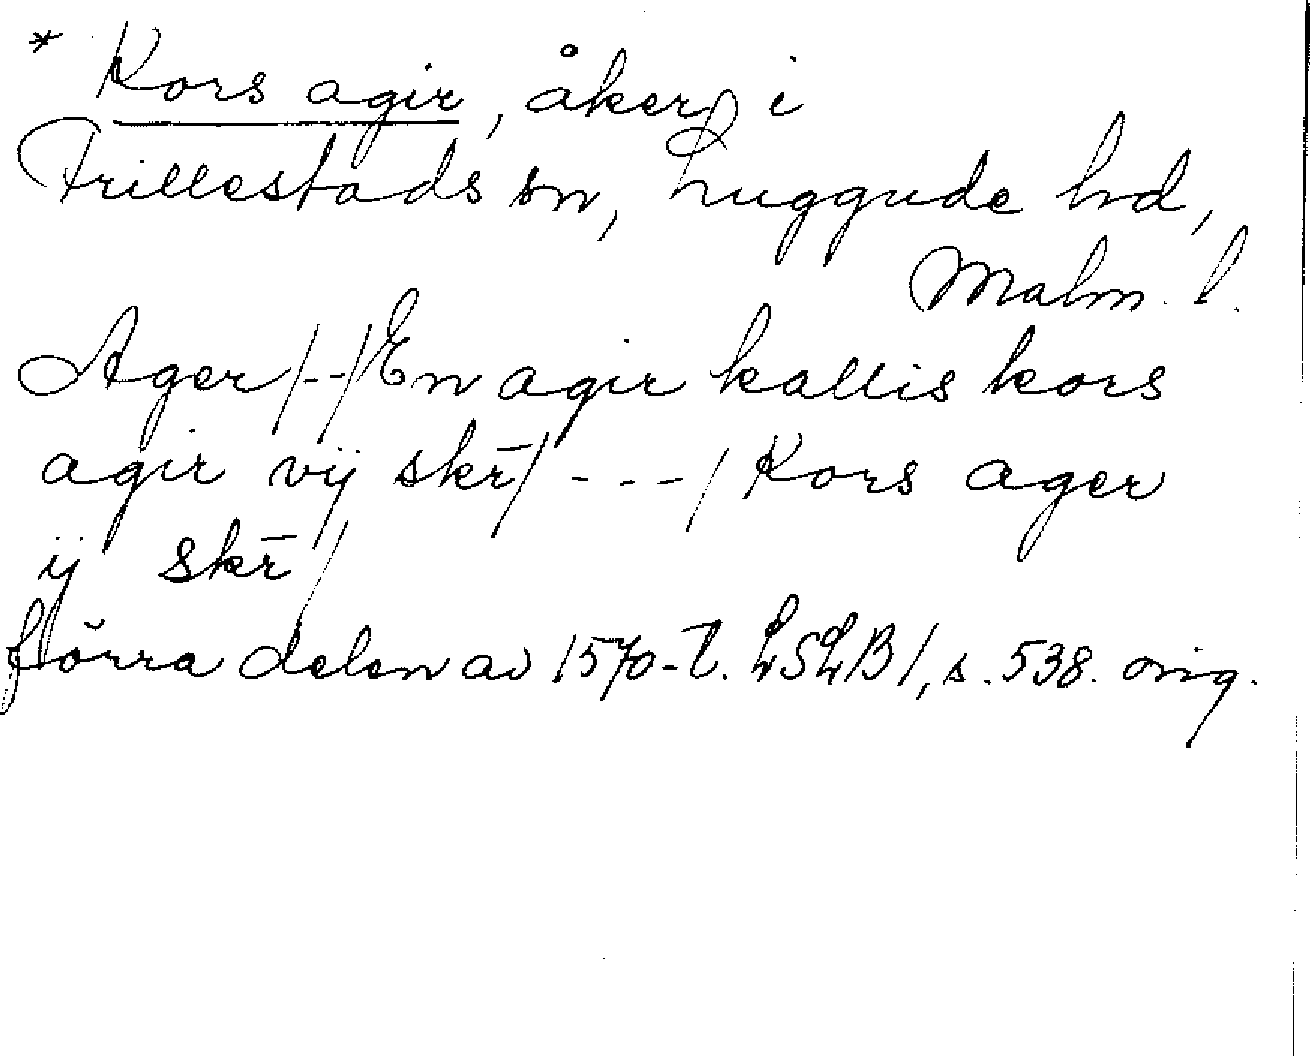 * Kors agir, åker i
Frillestads sn, Luggude hd,
Malm. l.
Ager/--/En agir kallis kors
agir vij skr̄/---/Kors ager
ij skr̄/
förra delen av 1570-t. LSLB1, s. 538. orig.